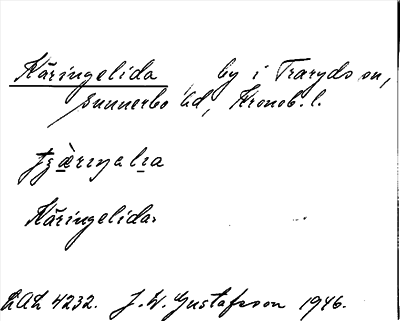 Käringelida by i Traryds sn,
Sunnerbo hd, Kronob. l.
Käringelida.
LAL 4232. J. W. Gustafsson 1946.